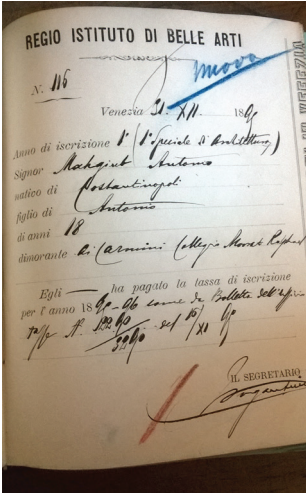 REGIO ISTITUTO DI BELLE ARTI
nuovo
N. 116
Venezia 31 XII 189
Anno di iscrizione 1° (1° Speciale d'Architettura)
Signor Mahgiub Antonio
natico di Costantinopoli
figlio di Antonio
di anni 18
dimorante ai Carmini Collegio Morat Raphael
Egli — ha pagato la tassa di iscrizione
per l'anno 1895-96 come da Bolletta dell'ufficio
N.° del XI
IL SEGRETARIO